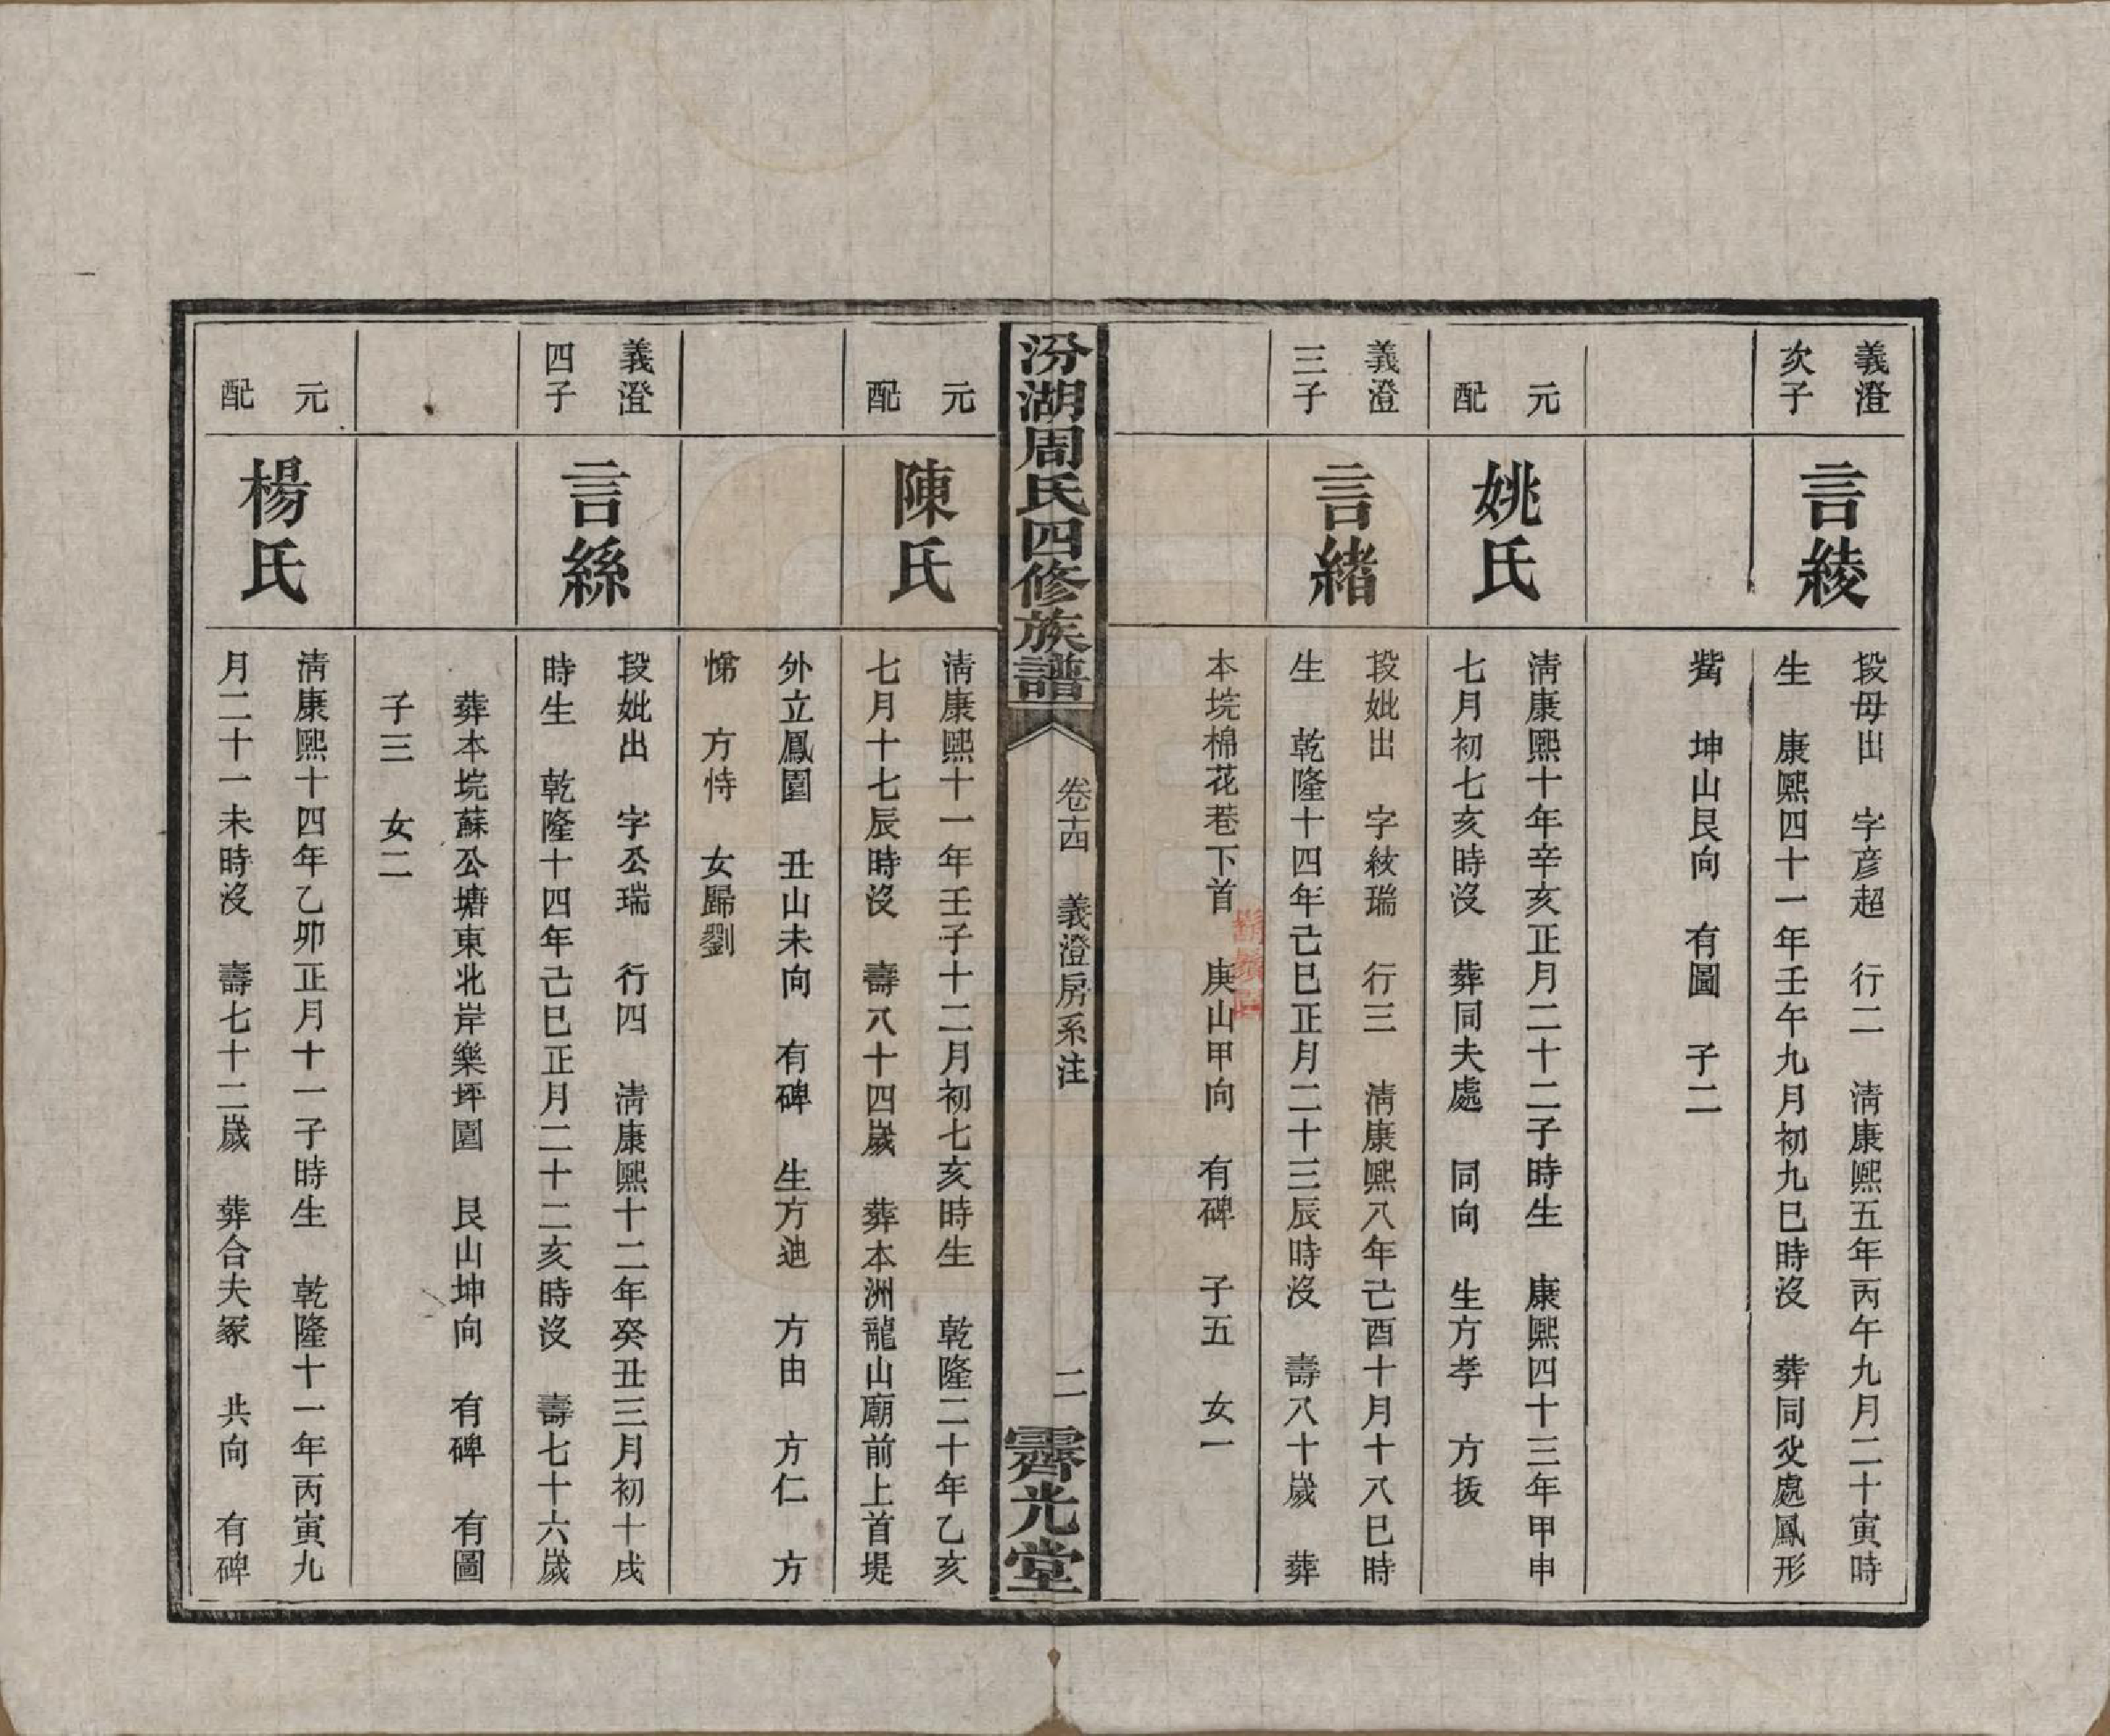 義澄
次子
言綾
段母出　字彦超　行二　清康熙五年丙午九月二十寅時
生　康熙四十一年壬午九月初九巳時沒　葬同父處鳳形
嘴　坤山艮向　有圖　子二
元
配
姚氏
清康熙十年辛亥正月二十二子時生　康熙四十三年甲申
七月初七亥時沒　葬同夫處　同向　生方孝　方拔
義澄
三子
言緒
段妣出　字紋瑞　行三　清康熙八年己酉十月十八巳時
生　乾隆十四年己巳正月二十三辰時沒　壽八十歲　葬
本垸棉花巷下首　庚山甲向　有碑　子五　女一
汾湖周氏四修族譜
卷十四　義澄房系注
二
霽光堂
元
配
陳氏
清康熙十一年壬子十二月初七亥時生　乾隆二十年乙亥
七月十七辰時沒　壽八十四歲　葬本洲龍山廟前上首堤
外立鳳園　丑山未向　有碑　生方迪　方由　方仁　方
悌　方恃　女歸劉
義澄
四子
言絲
段妣出　字公瑞　行四　清康熙十二年癸丑三月初十戌
時生　乾隆十四年己巳正月二十二亥時沒　壽七十六歲
葬本垸蘇公塘東北岸樂坪園　艮山坤向　有碑　有圖
子三　女二
元
配
楊氏
清康熙十四年乙卯正月十一子時生　乾隆十一年丙寅九
月二十一未時沒　壽七十二歲　葬合夫冢　共向　有碑